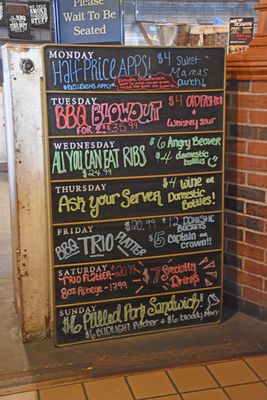 Please
Wait To Be
Seated
MONDAY
Half Price APPS! $4 Sweet
Mamas
Punch
TUESDAY
BBQ BLOWOUT $4 OLD FASHION
FOR 2 $35.99 + Whiskey Sour
WEDNESDAY $6 Angry Beaver
ALL YOU CAN EAT RIBS $4 domestic
$24.99 bottles
THURSDAY
Ask Your Server $4 wine or
Domestic
Bottles!
FRIDAY $20.99 $12 DOMESTIC
BUCKETS
BBQ TRIO PLATTER $5 Captain or
Crown!!
SATURDAY
TRIO PLATTER 20.99 $7 Specialty
8oz Ribeye 17.99 Drinks
SUNDAY
$6 Pulled Pork Sandwich!
$6 BUDLIGHT Pitcher $6 bloody Mary